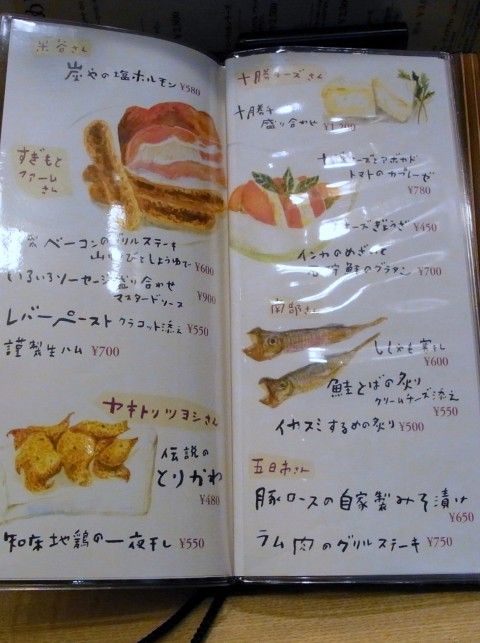 炭やの塩ホルモン ¥580
すぎもと
ファーム
さん
ベーコンのグリルステーキ
山わさびとしょうゆで ¥600
いろいろソーセージ盛り合わせ
マスタードソース ¥900
レバーペースト クラコット添え ¥550
謹製生ハム ¥700
ヤキトリツヨシさん
伝説の
とりかわ
¥480
知床地鶏の一夜干し ¥550
十勝チーズさん
十勝チ
盛り合わせ ¥1,200
チーズとアボカド
トマトのカプレーゼ
¥780
ーズぎょうざ ¥450
インカのめざめと
鮭のグラタン ¥700
南部さん
ししゃも寒干し
¥600
鮭とばの炙り
クリームチーズ添え
¥550
イカスミするめの炙り ¥500
五日市さん
豚ロースの自家製みそ漬け
¥650
ラム肉のグリルステーキ ¥750